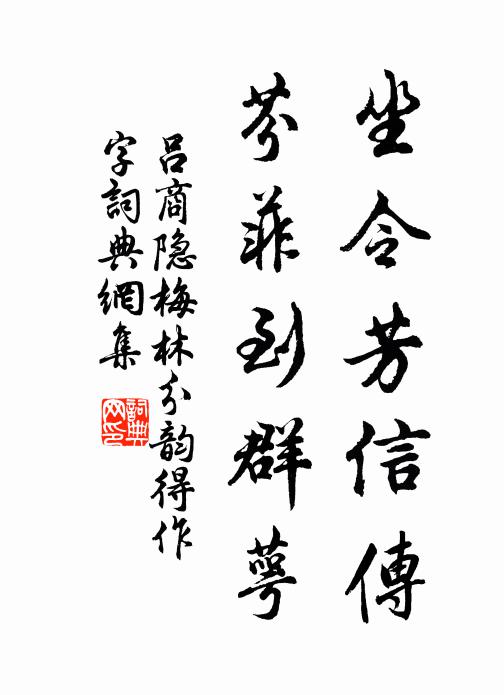 坐令芳信傳
芬菲到群萼
吕商隐梅林分韵得作
字詞典網集
詞典网印